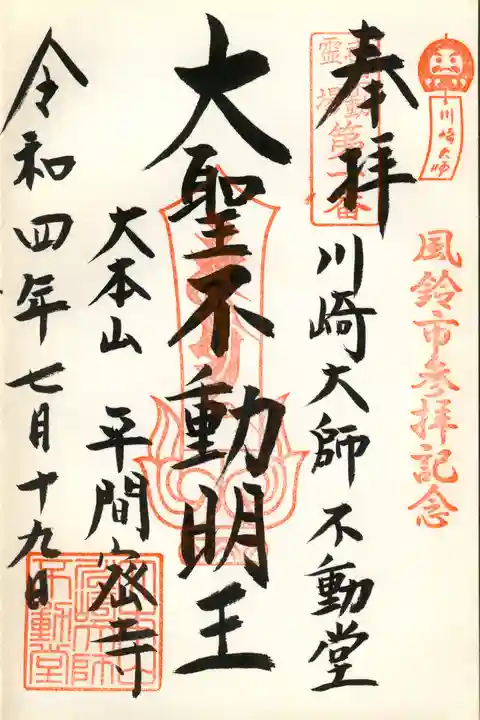 川崎大師
風鈴市参拝記念
奉拝
川崎大師 不動堂
大聖不動明王
大本山 平間寺
令和四年七月十九日